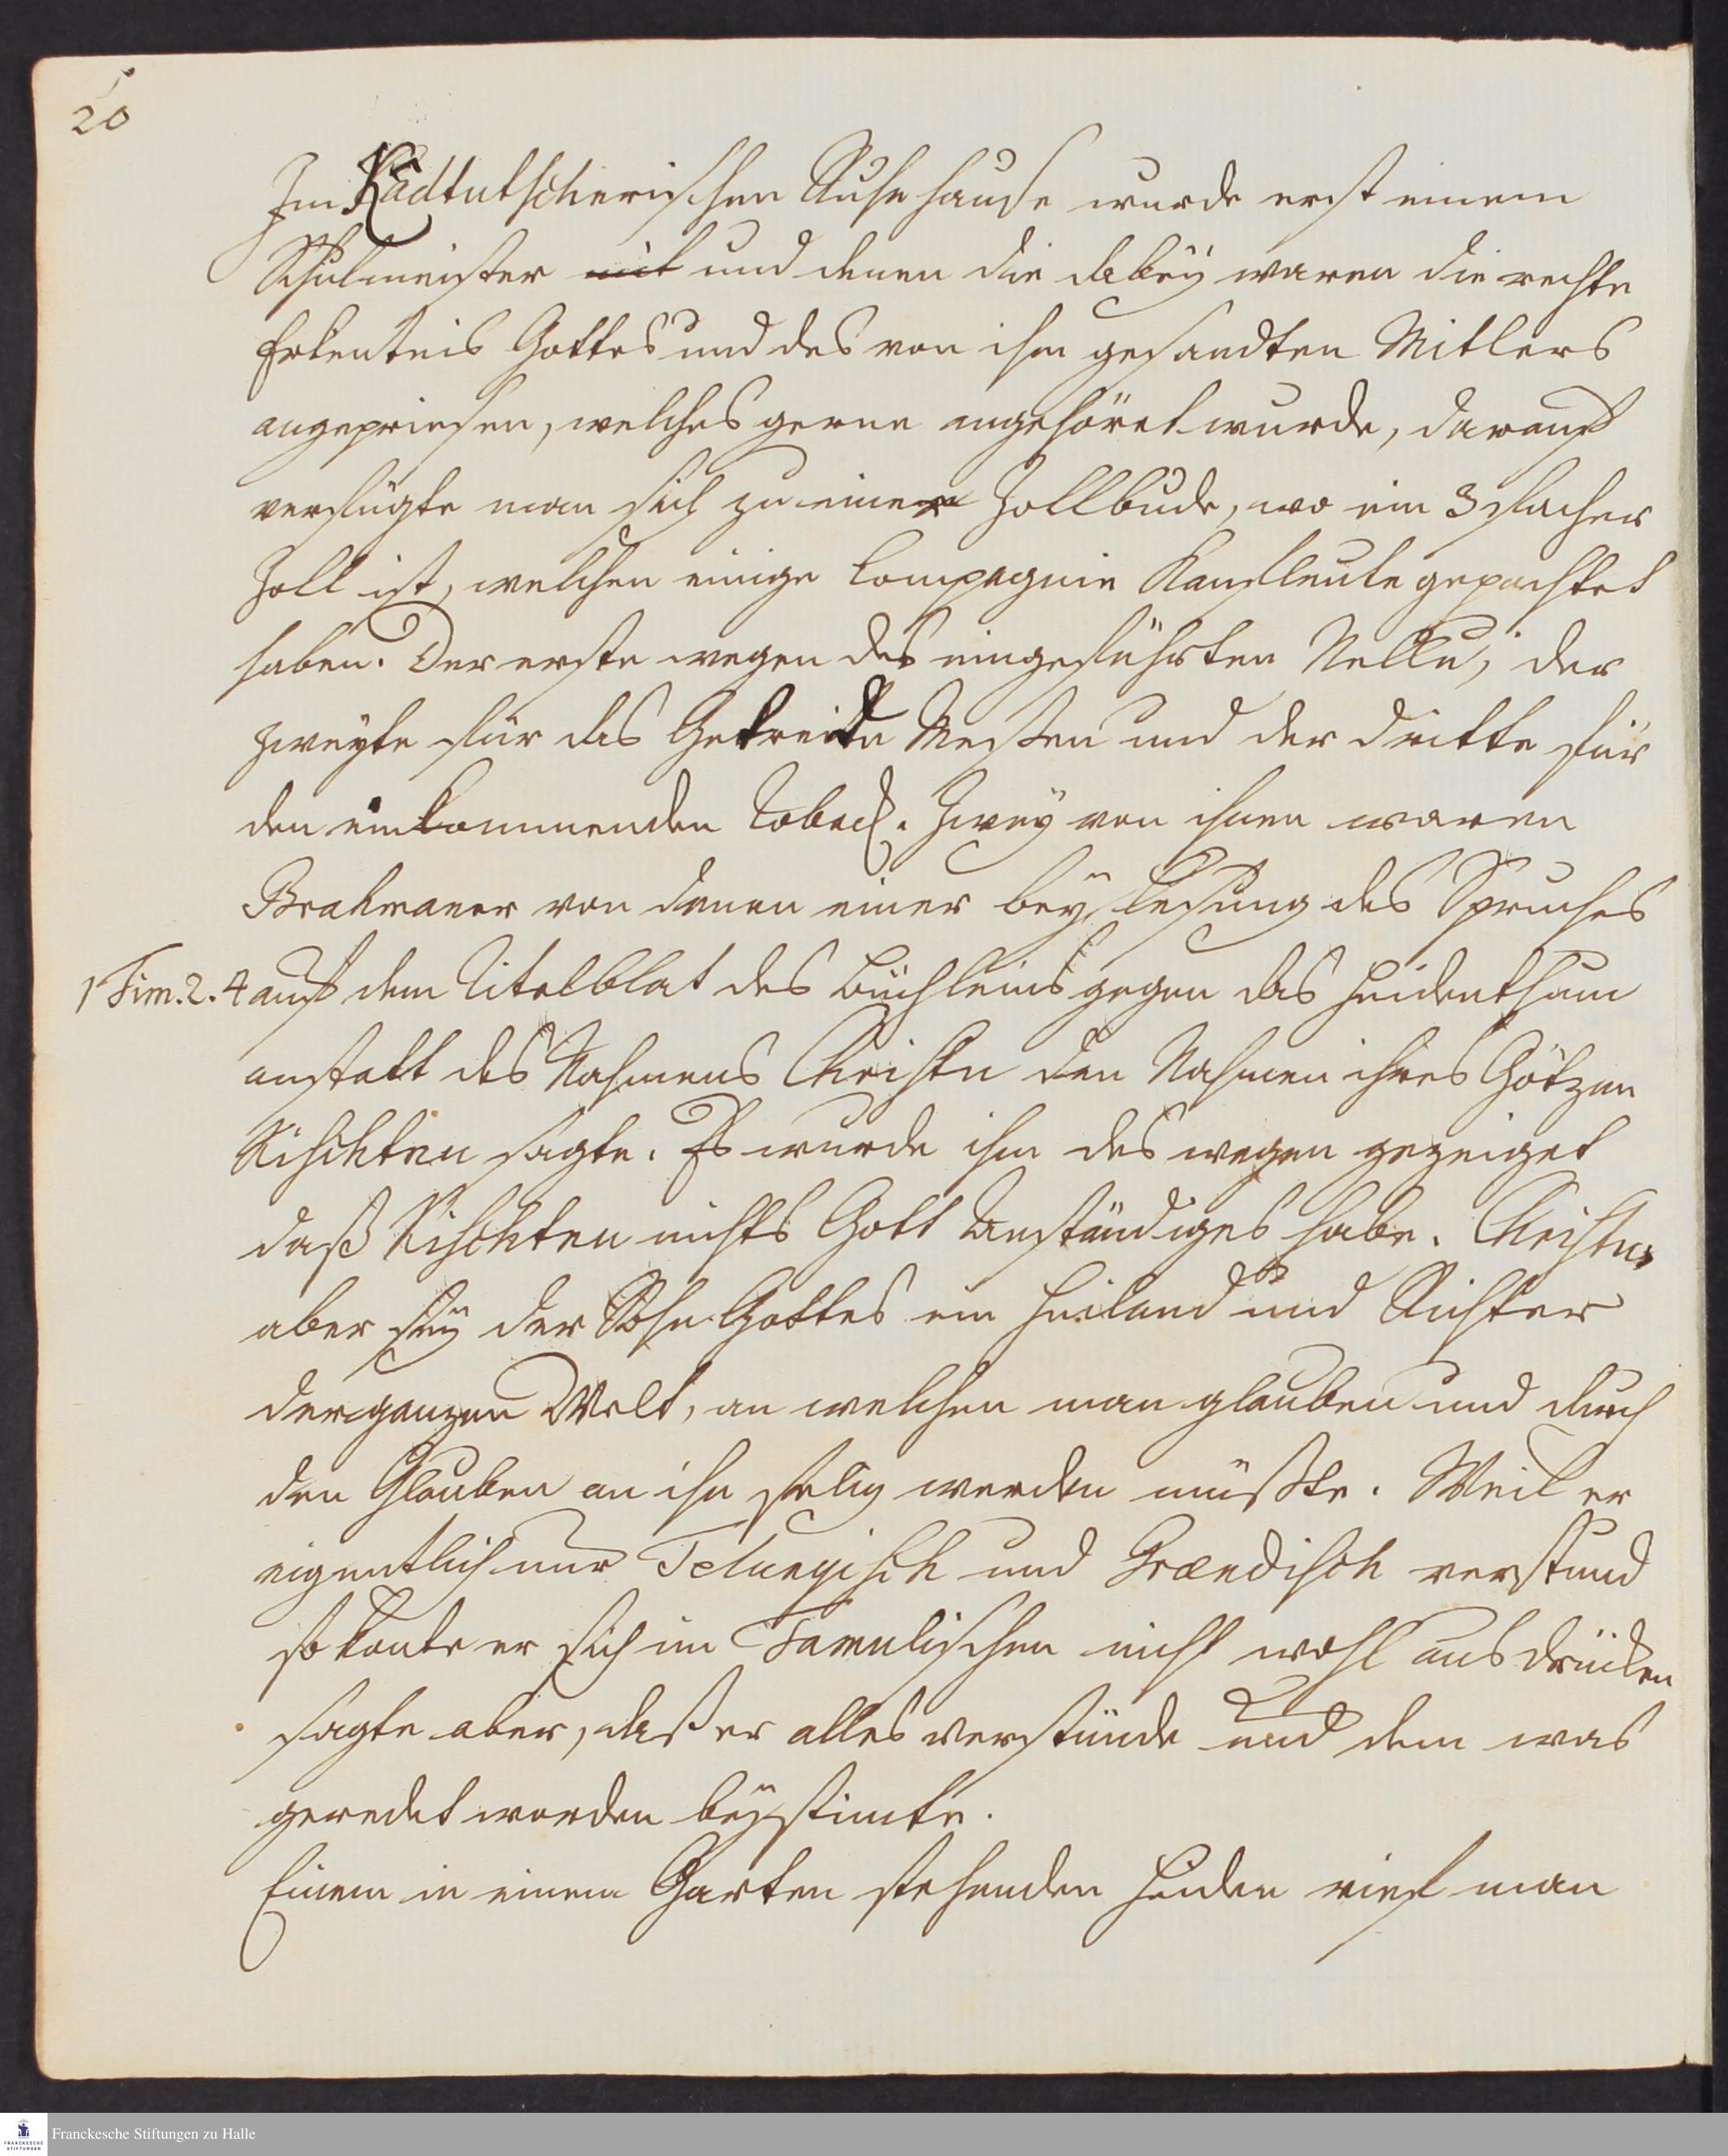 20
Im Kädtutscherischen Ruhehause wurde erst einem
Schulmeister mit und denen die dabey waren die rechte
Erkentnis Gottes und des von ihm gesandten Mitlers
angepriesen, welches gerne angehöret wurde, darauf
verfügte man sich zu einer Zollbude, wo ein 3facher
Zoll ist, welchen einige Compagnie Kaufleute gepachtet
haben. Der erste wegen des eingeführten Nellu, der
zweyte für das Getreide Messen und der dritte für
den einkommenden Toback. Zwey von ihnen waren
Brahmaner von denen einer bey Lesung des Spruches
1 Tim. 2. 4 auf dem Titelblat des Büchleins gegen das Heidenthum
anstatt des Nahmens Christu den Nahmen ihres Götzen
Kischten sagte. Es wurde ihm des wegen gezeiget
daß Kischten nichts Gott Anständiges habe. Christus
aber sey der Sohn Gottes ein Heiland und Richter
der ganzen Welt, an welchen man glauben und durch
den Glauben an ihn selig werden müßte. Weil er
eigentlich nur Telungisch und Grændisch verstund
so konte er sich im Tamulischen nicht wohl ausdrücken
sagte aber, daß er alles verstünde und dem was
geredet worden beystimte.
Einem in einem Garten stehenden Heiden rief man
Franckesche Stiftungen zu Halle